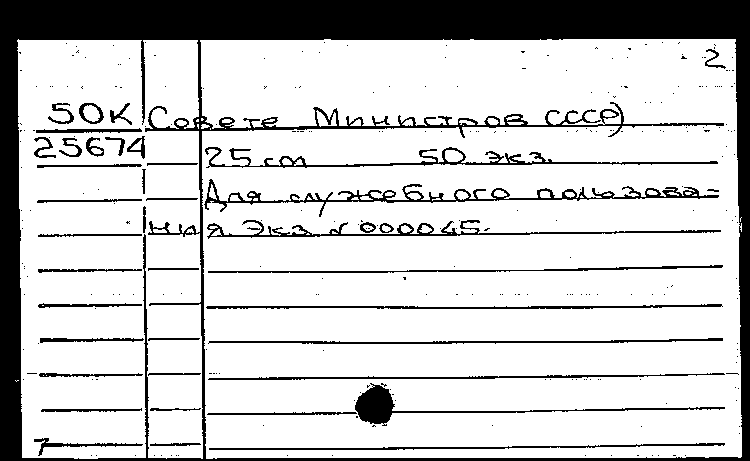 2
50К Совете Министров СССР)
25674 25 см 50 экз.
Для служебного пользова=
ния. Экз № 000045.
7